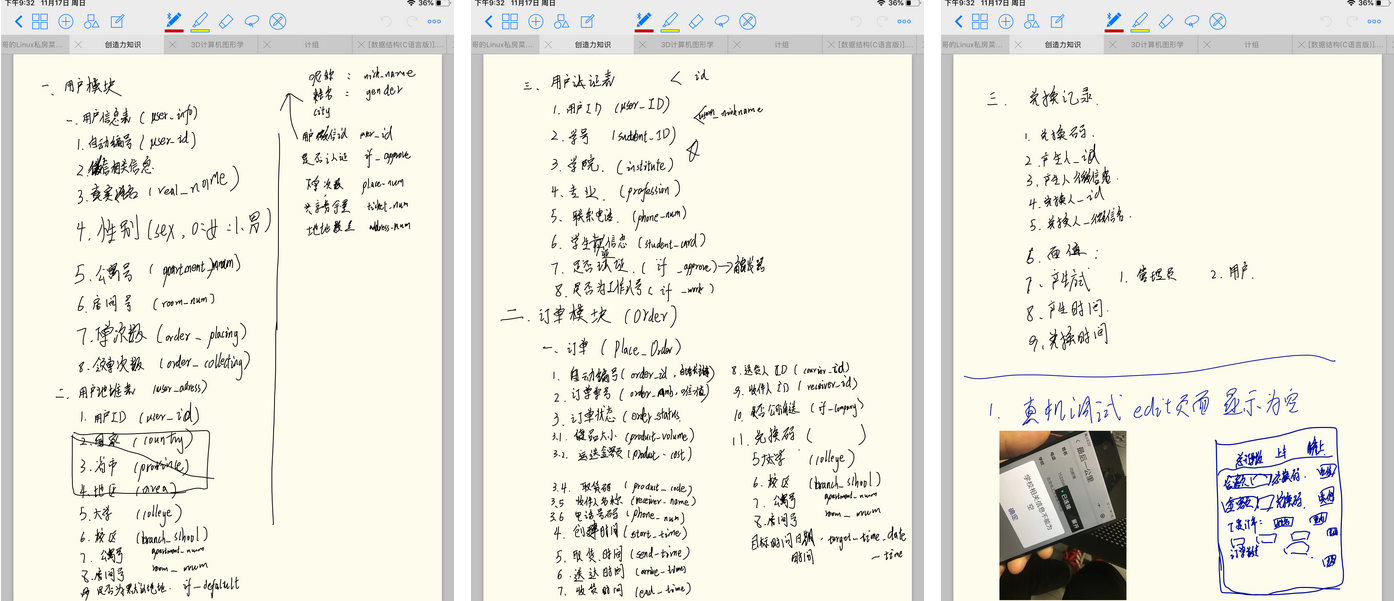 下午9:32 11月17日 周日
36%
哥的Linux私房菜...
创造力知识
3D计算机图形学
计组
[数据结构(C语言版)]...
一、用户模块
一、用户信息表 (user_info)
1.自动编号 (user_id)
2.微信相关信息
3.真实姓名 (real_name)
4.性别 (sex, 0:女 1:男)
5.公寓号 (apartment_num)
6.房间号 (room_num)
7.下单次数 (order_placing)
8.领单次数 (order_collecting)
二、用户地址表 (user_adress)
1.用户ID (user_id)
2.国家 (country)
3.省市 (province)
4.地区 (area)
5.大学 (colleye)
6.校区 (branch_school)
7.公寓号 apartment_num
8.房间号 room_num
是否为默认地址. if_defaltult
昵称: nick_name
性别: gender
city
用户微信id user_id
是否认证 if_approve
下单次数 place_num
共享券量 ticket_num
地址数量 address_num
下午9:32 11月17日 周日
36%
哥的Linux私房菜...
创造力知识
3D计算机图形学
计组
[数据结构(C语言版)]...
三、用户认证表 < id
1.用户ID (user_ID)
nickname
2.学号 (student_ID)
3.学院. (institute)
4.专业. (profession)
5.联系电话. (phone_num)
6.学生证信息 (student_card)
7.是否认证. (if_approve)
8.是否为工作人员 (if_work)
二、订单模块 (Order)
一、订单 (Place_Order)
1.自动编号 (order_id,
2.订单单号 (order_
3.订单状态 (order_status
3.1. 货品大小 (product_volume)
3.2. 运送金额 (product_cost)
3.4. 取货码 (product_code)
3.5 收件人名称 (receiver_name)
3.6 电话号码 (phone_num)
4.创建时间 (start_time)
5.取货.时间 (send_time)
6.送达时间 (arrive_time)
7.收货时间 (end_time)
8.送货人ID (carrier_id)
9.收件人ID (receiver_id)
10.是否公司配送 (if_company)
11.兑换码 ( )
5大学 (colleye)
6.校区 (branch_school)
7.公寓号 apartment_num
8.房间号 room_num
目标时间日期 - target_time_date
时间 - time
下午9:32 11月17日 周日
36%
哥的Linux私房菜...
创造力知识
3D计算机图形学
计组
[数据结构(C语言版)]...
三、兑换记录.
1.兑换码.
2.产生人_id
3.产生人_微信名.
4.兑换人_id
5.兑换人_微信名.
6.面值:
7.产生方式 1.管理员 2.用户.
8.产生时间.
9.兑换时间
1.真机调试 edit页面 显示为空
最后一公里
学校相关信息不能为空
确定